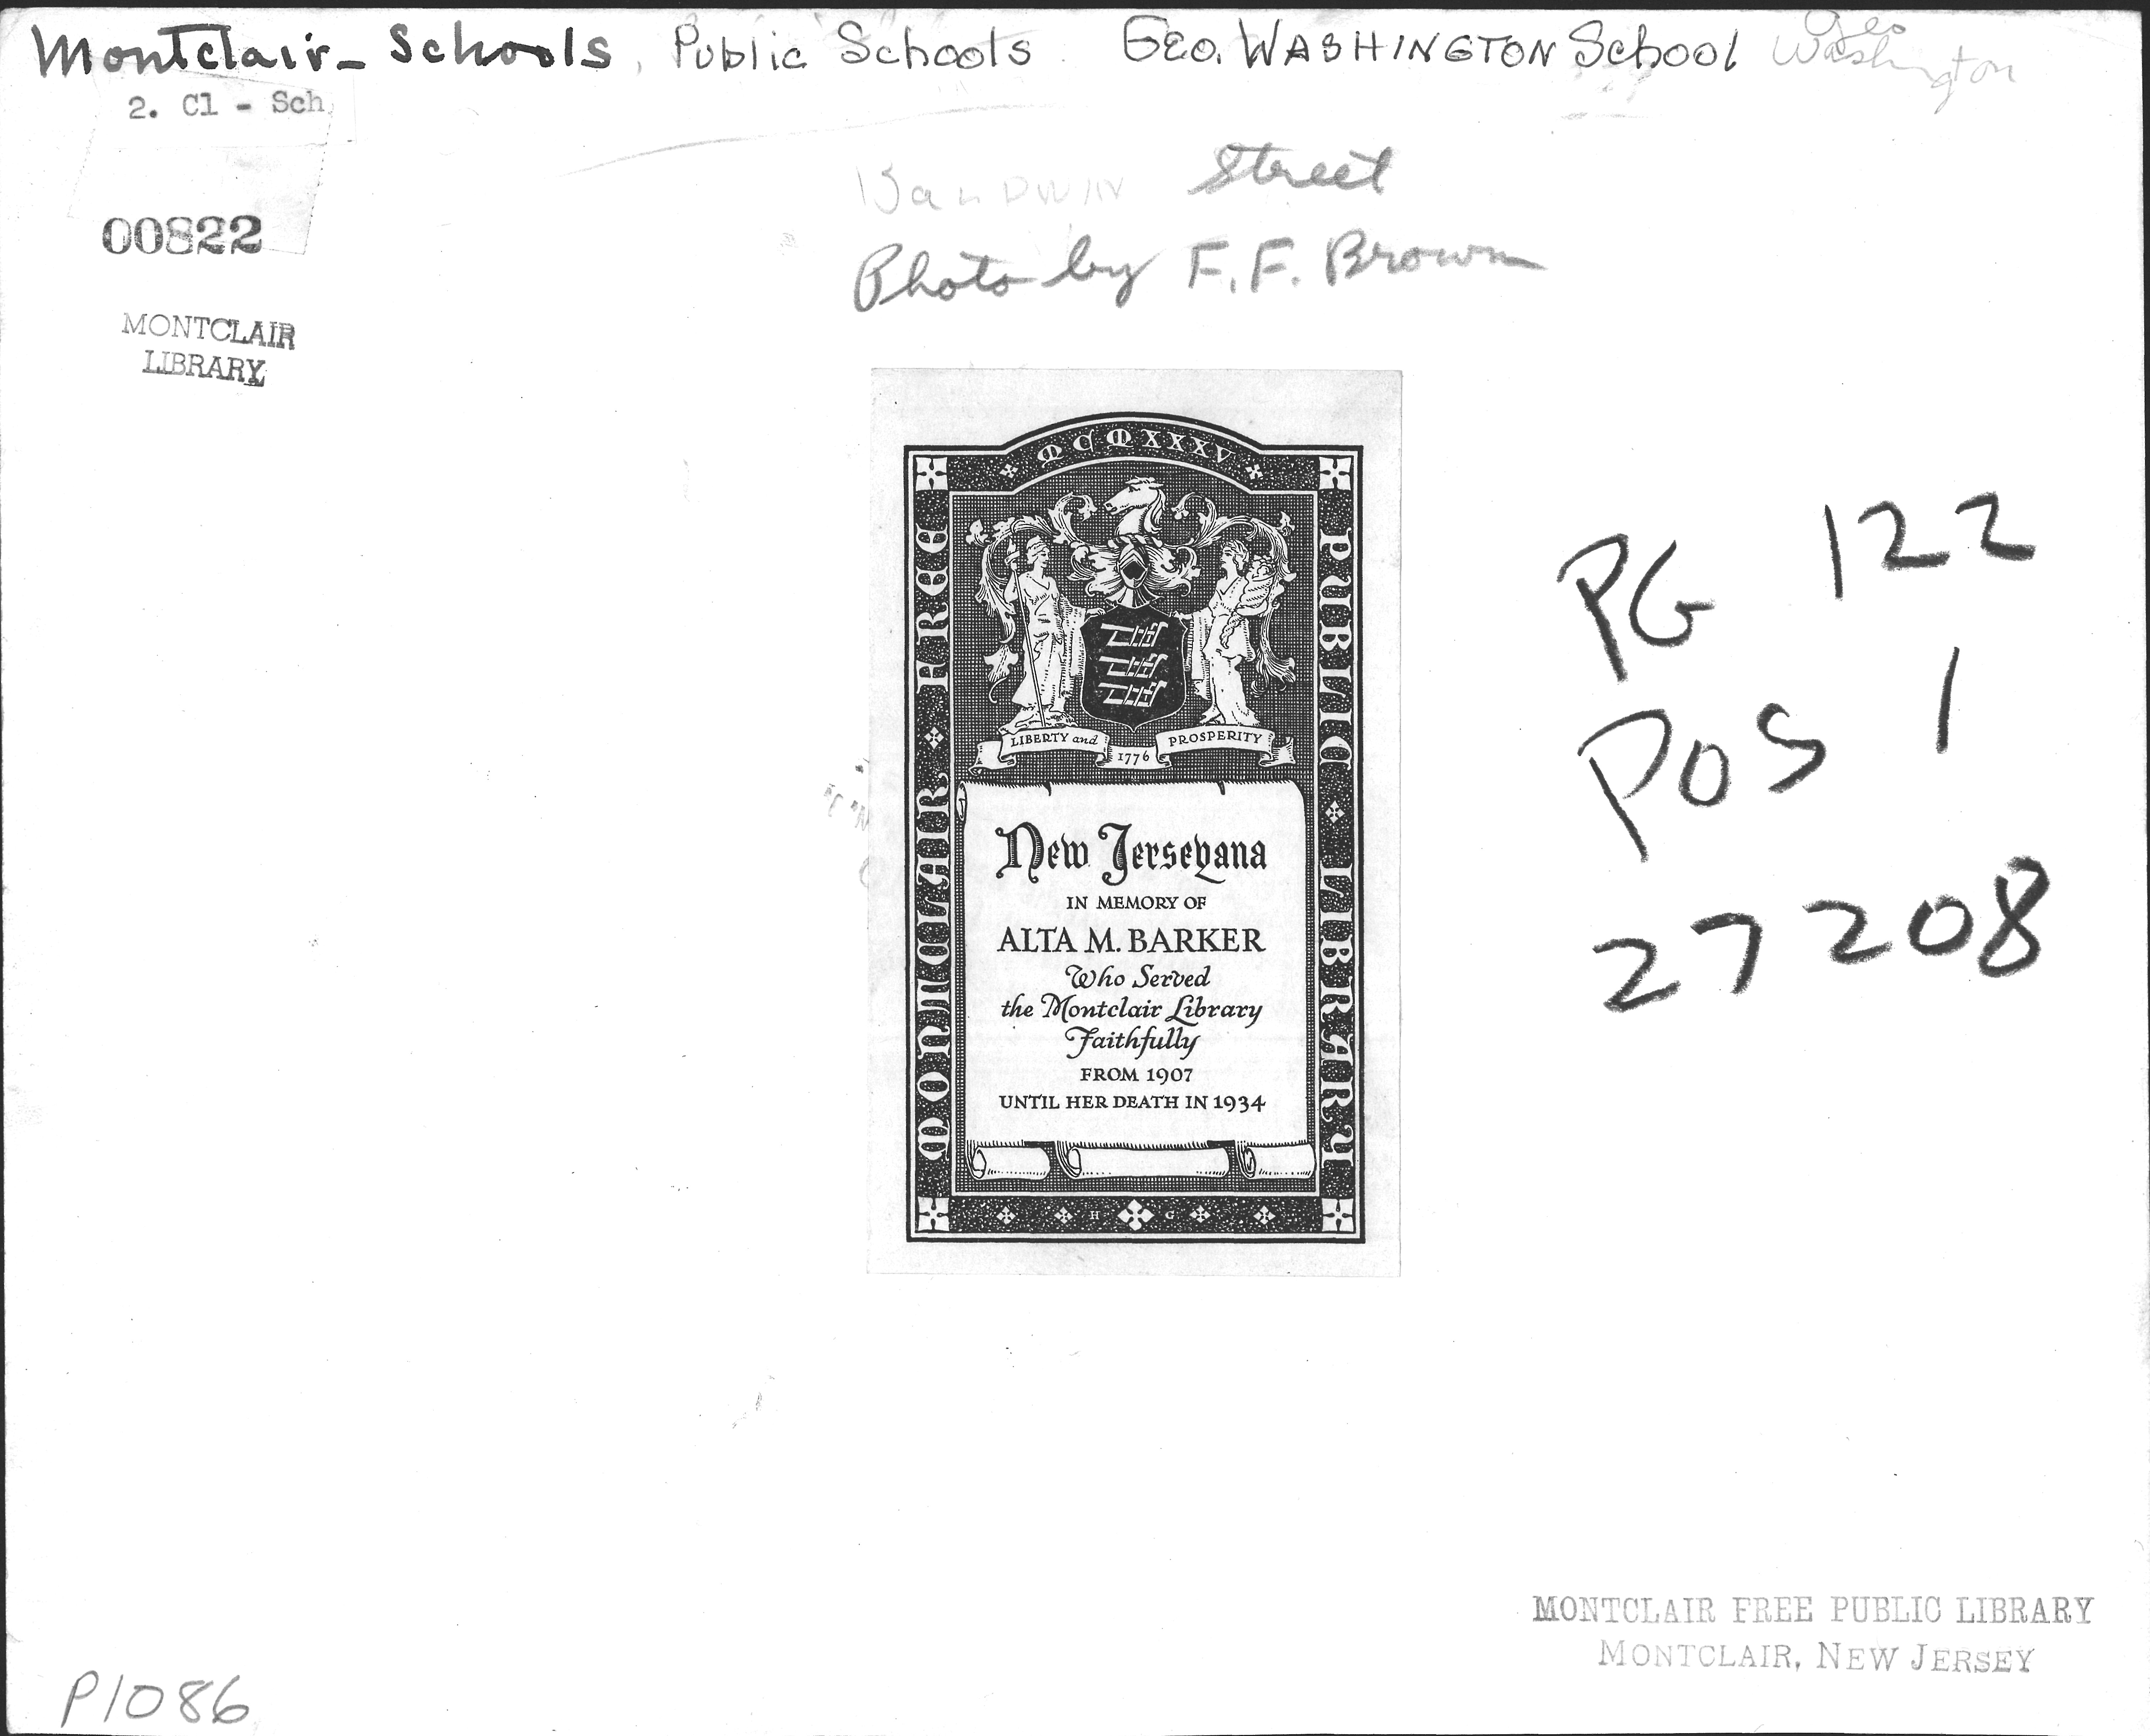 Montclair - Schools, Public Schools GEO. WASHINGTON School Geo Washington
2. Cl - Sch
Street
00822
Photo by F.F. Brown
MONTCLAIR
LIBRARY
MCMXXXV
MONTCLAIR FREE
PUBLIC LIBRARY
LIBERTY and
1776
PROSPERITY
New Jerseyana
IN MEMORY OF
ALTA M. BARKER
Who Served
the Montclair Library
Faithfully
FROM 1907
UNTIL HER DEATH IN 1934
H G
PG 122
POS 1
27208
MONTCLAIR FREE PUBLIC LIBRARY
MONTCLAIR, NEW JERSEY
P1086